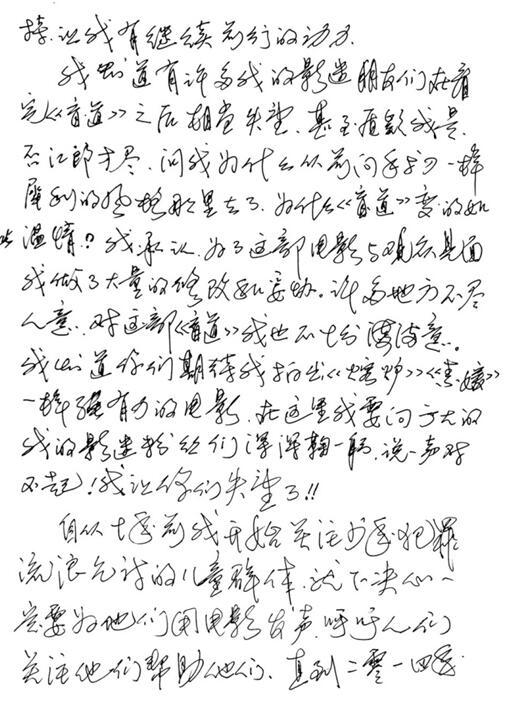 持.让我有继续前行的动力.
我知道有许多我的影迷朋友们在看
完《盲道》之后相当失望.甚至质疑我是
否江郎才尽.问我为什么以前问手机一样
犀利的风格那里去了.为什么《盲道》变的如
此温情?我承认.为了这部电影与观众见面
我做了大量的修改和妥协。许多地方不尽
人意.对这部《盲道》我也不十分满意.
我知道你们期待我拍出《熔炉》《素媛》
一样强有力的电影.在这里我要向广大的
我的影迷粉丝们深深鞠一躬.说一声对
不起!我让你们失望了!!
自从七年前我开始关注少年犯罪
流浪乞讨的儿童群体.就下决心一
定要为他们用电影发声.呼吁人们
关注他们帮助他们.直到二零一四年